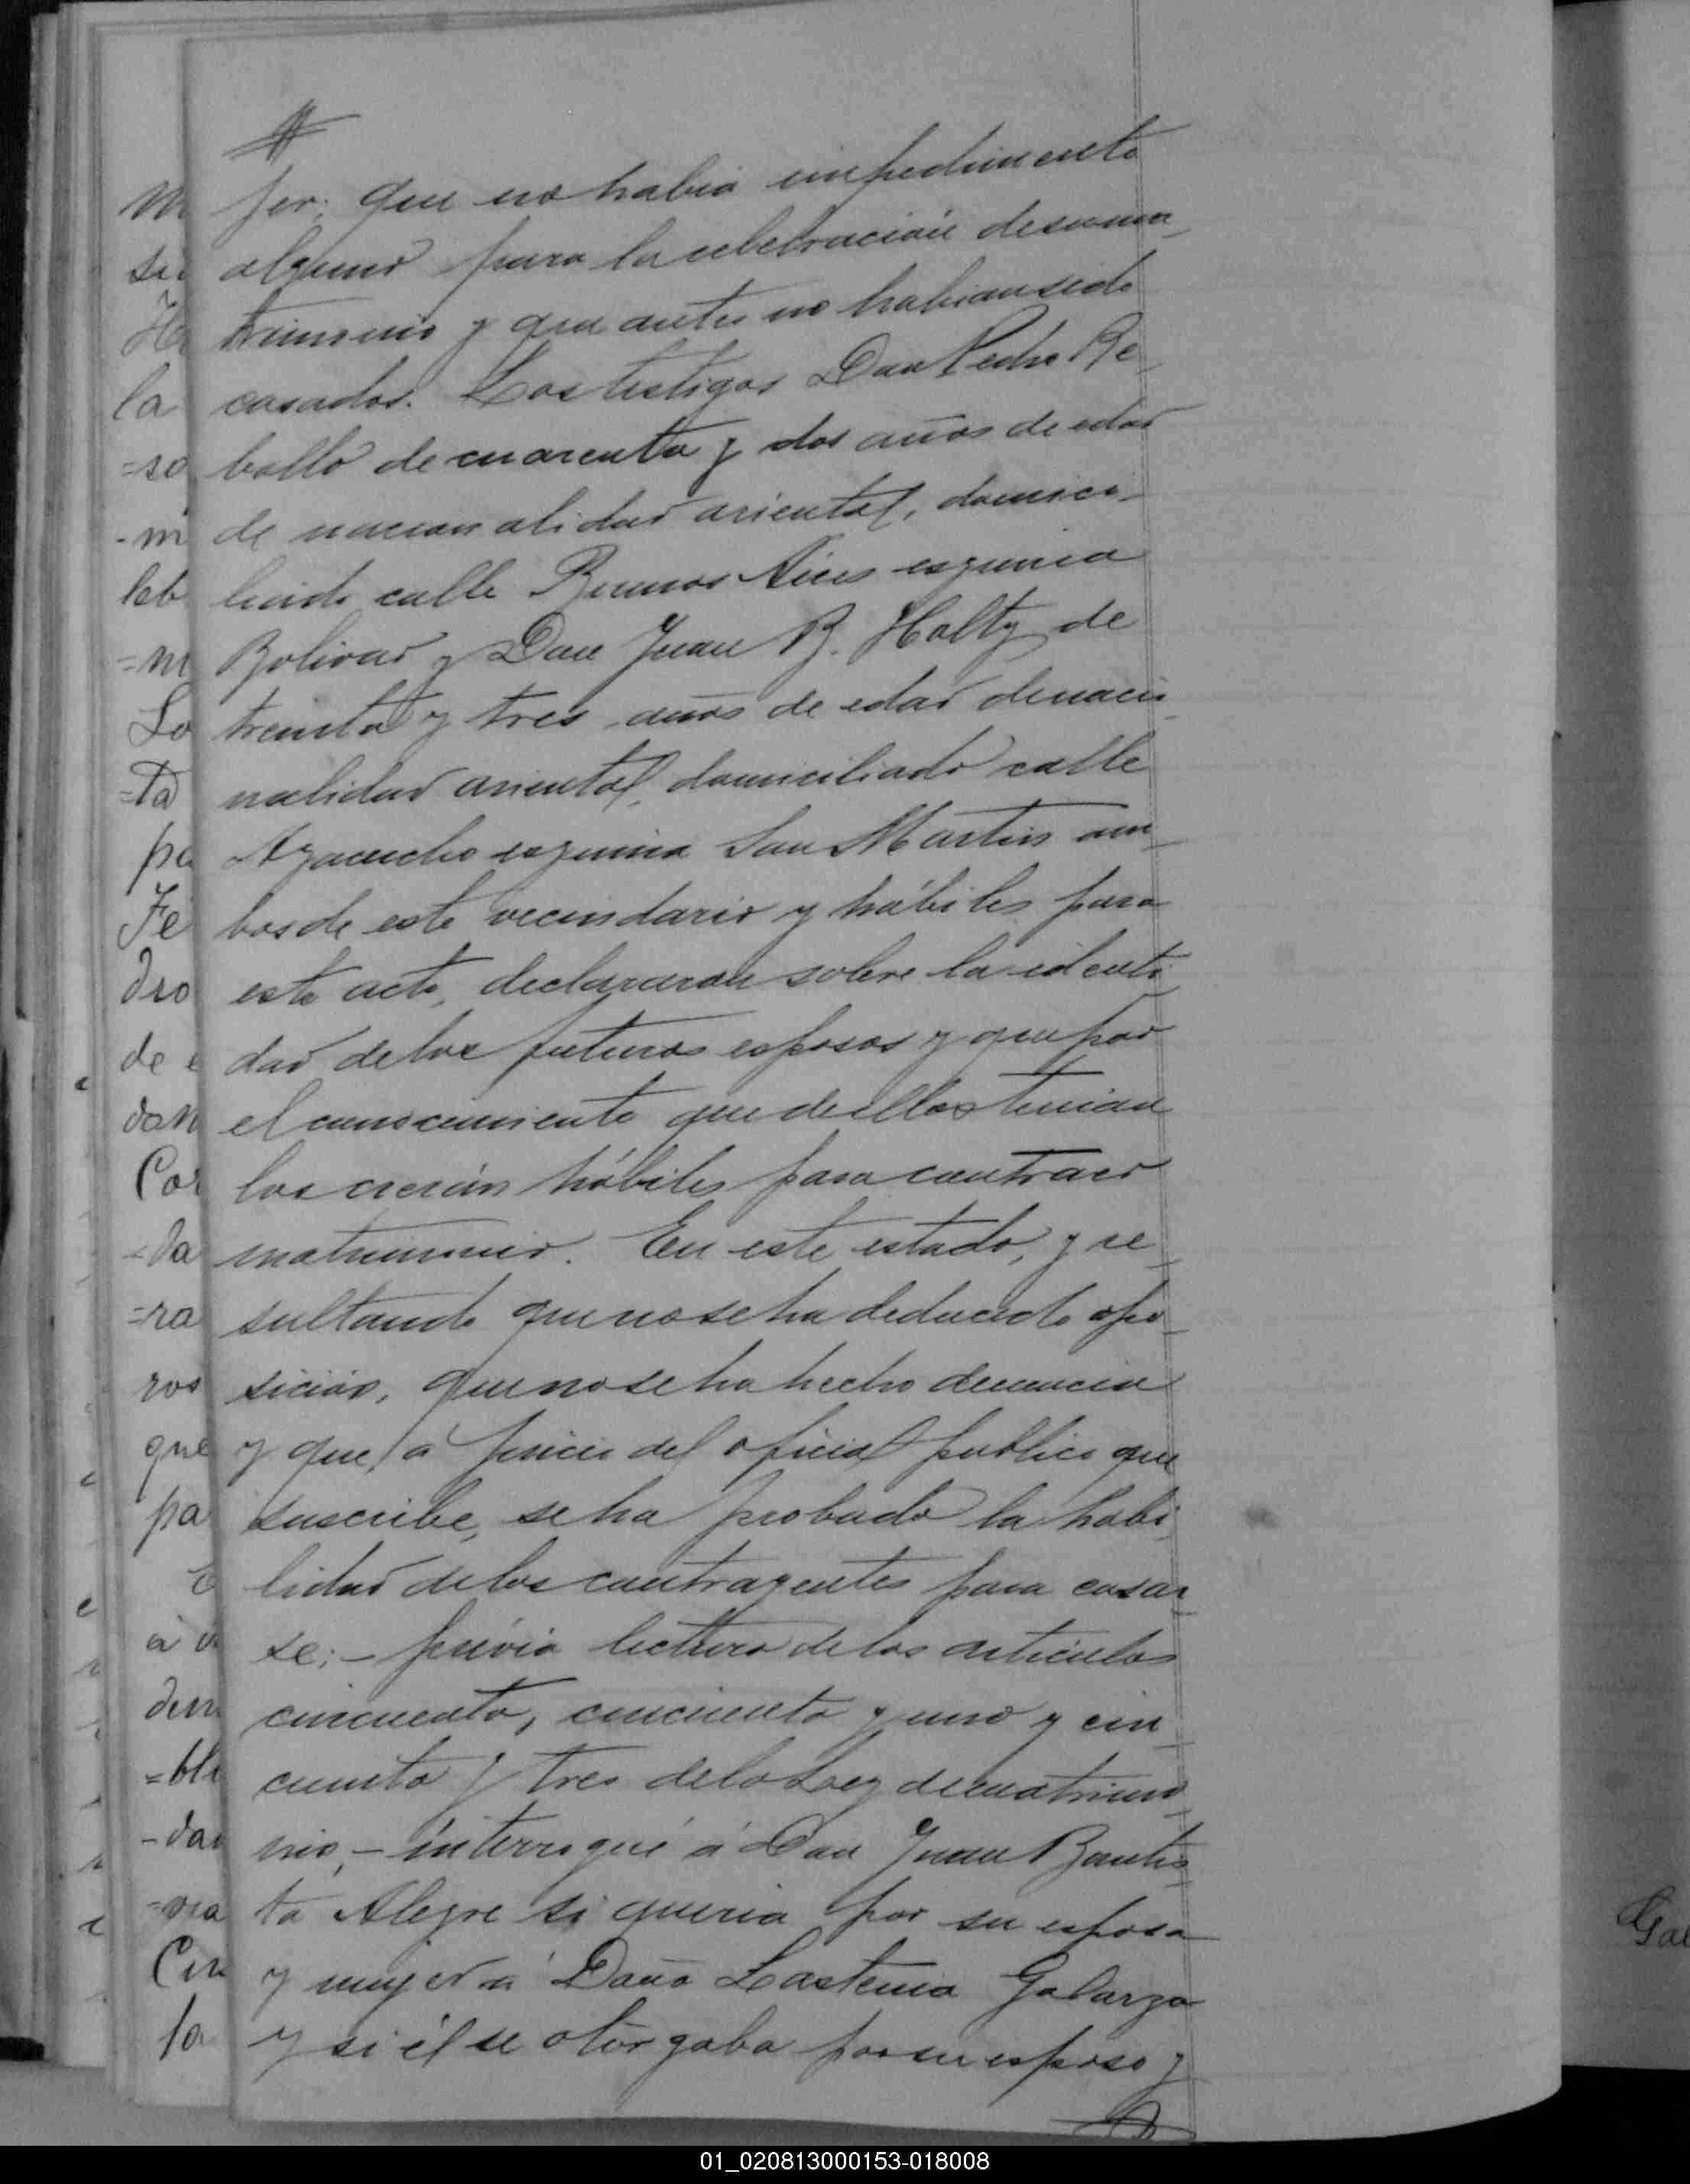 jer; que no había impedimento
alguno para la celebración de su ma-
trimonio y que antes no habian sido
casados. Los testigos Don Pedro Re-
bollo de cuarenta y dos años de edad
de nacionalidad oriental, domici-
liado calle Buenos Aires esquina
Bolivar y Don Juan B. Holtz de
treinta y tres años de edad de nacio-
nalidad oriental, domiciliado calle
Ayacucho esquina San Martin am-
bos de este vecindario y hábiles para
este acto, declararon sobre la identi-
dad de los futuros esposos y que por
el conocimiento que de ellos tenian
los creian hábiles para contraer
matrimonio. En este estado, y re-
sultando que no se ha deducido opo-
sición, que no se ha hecho denuncia
y que, á juicio del oficial publico que
suscribe, se ha probado la habi-
lidad de los contrayentes para casar-
se; - prévia lectura de los articulos
cincuenta, cincuenta y uno y cin-
cuenta y tres de la Ley de matrimo-
nio, - interrogué á Don Juan Bautis-
ta Alegre si queria por su esposa
y mujer á Doña Lastenia Galarza
y si él se otorgaba por su esposo y
01_020813000153-018008